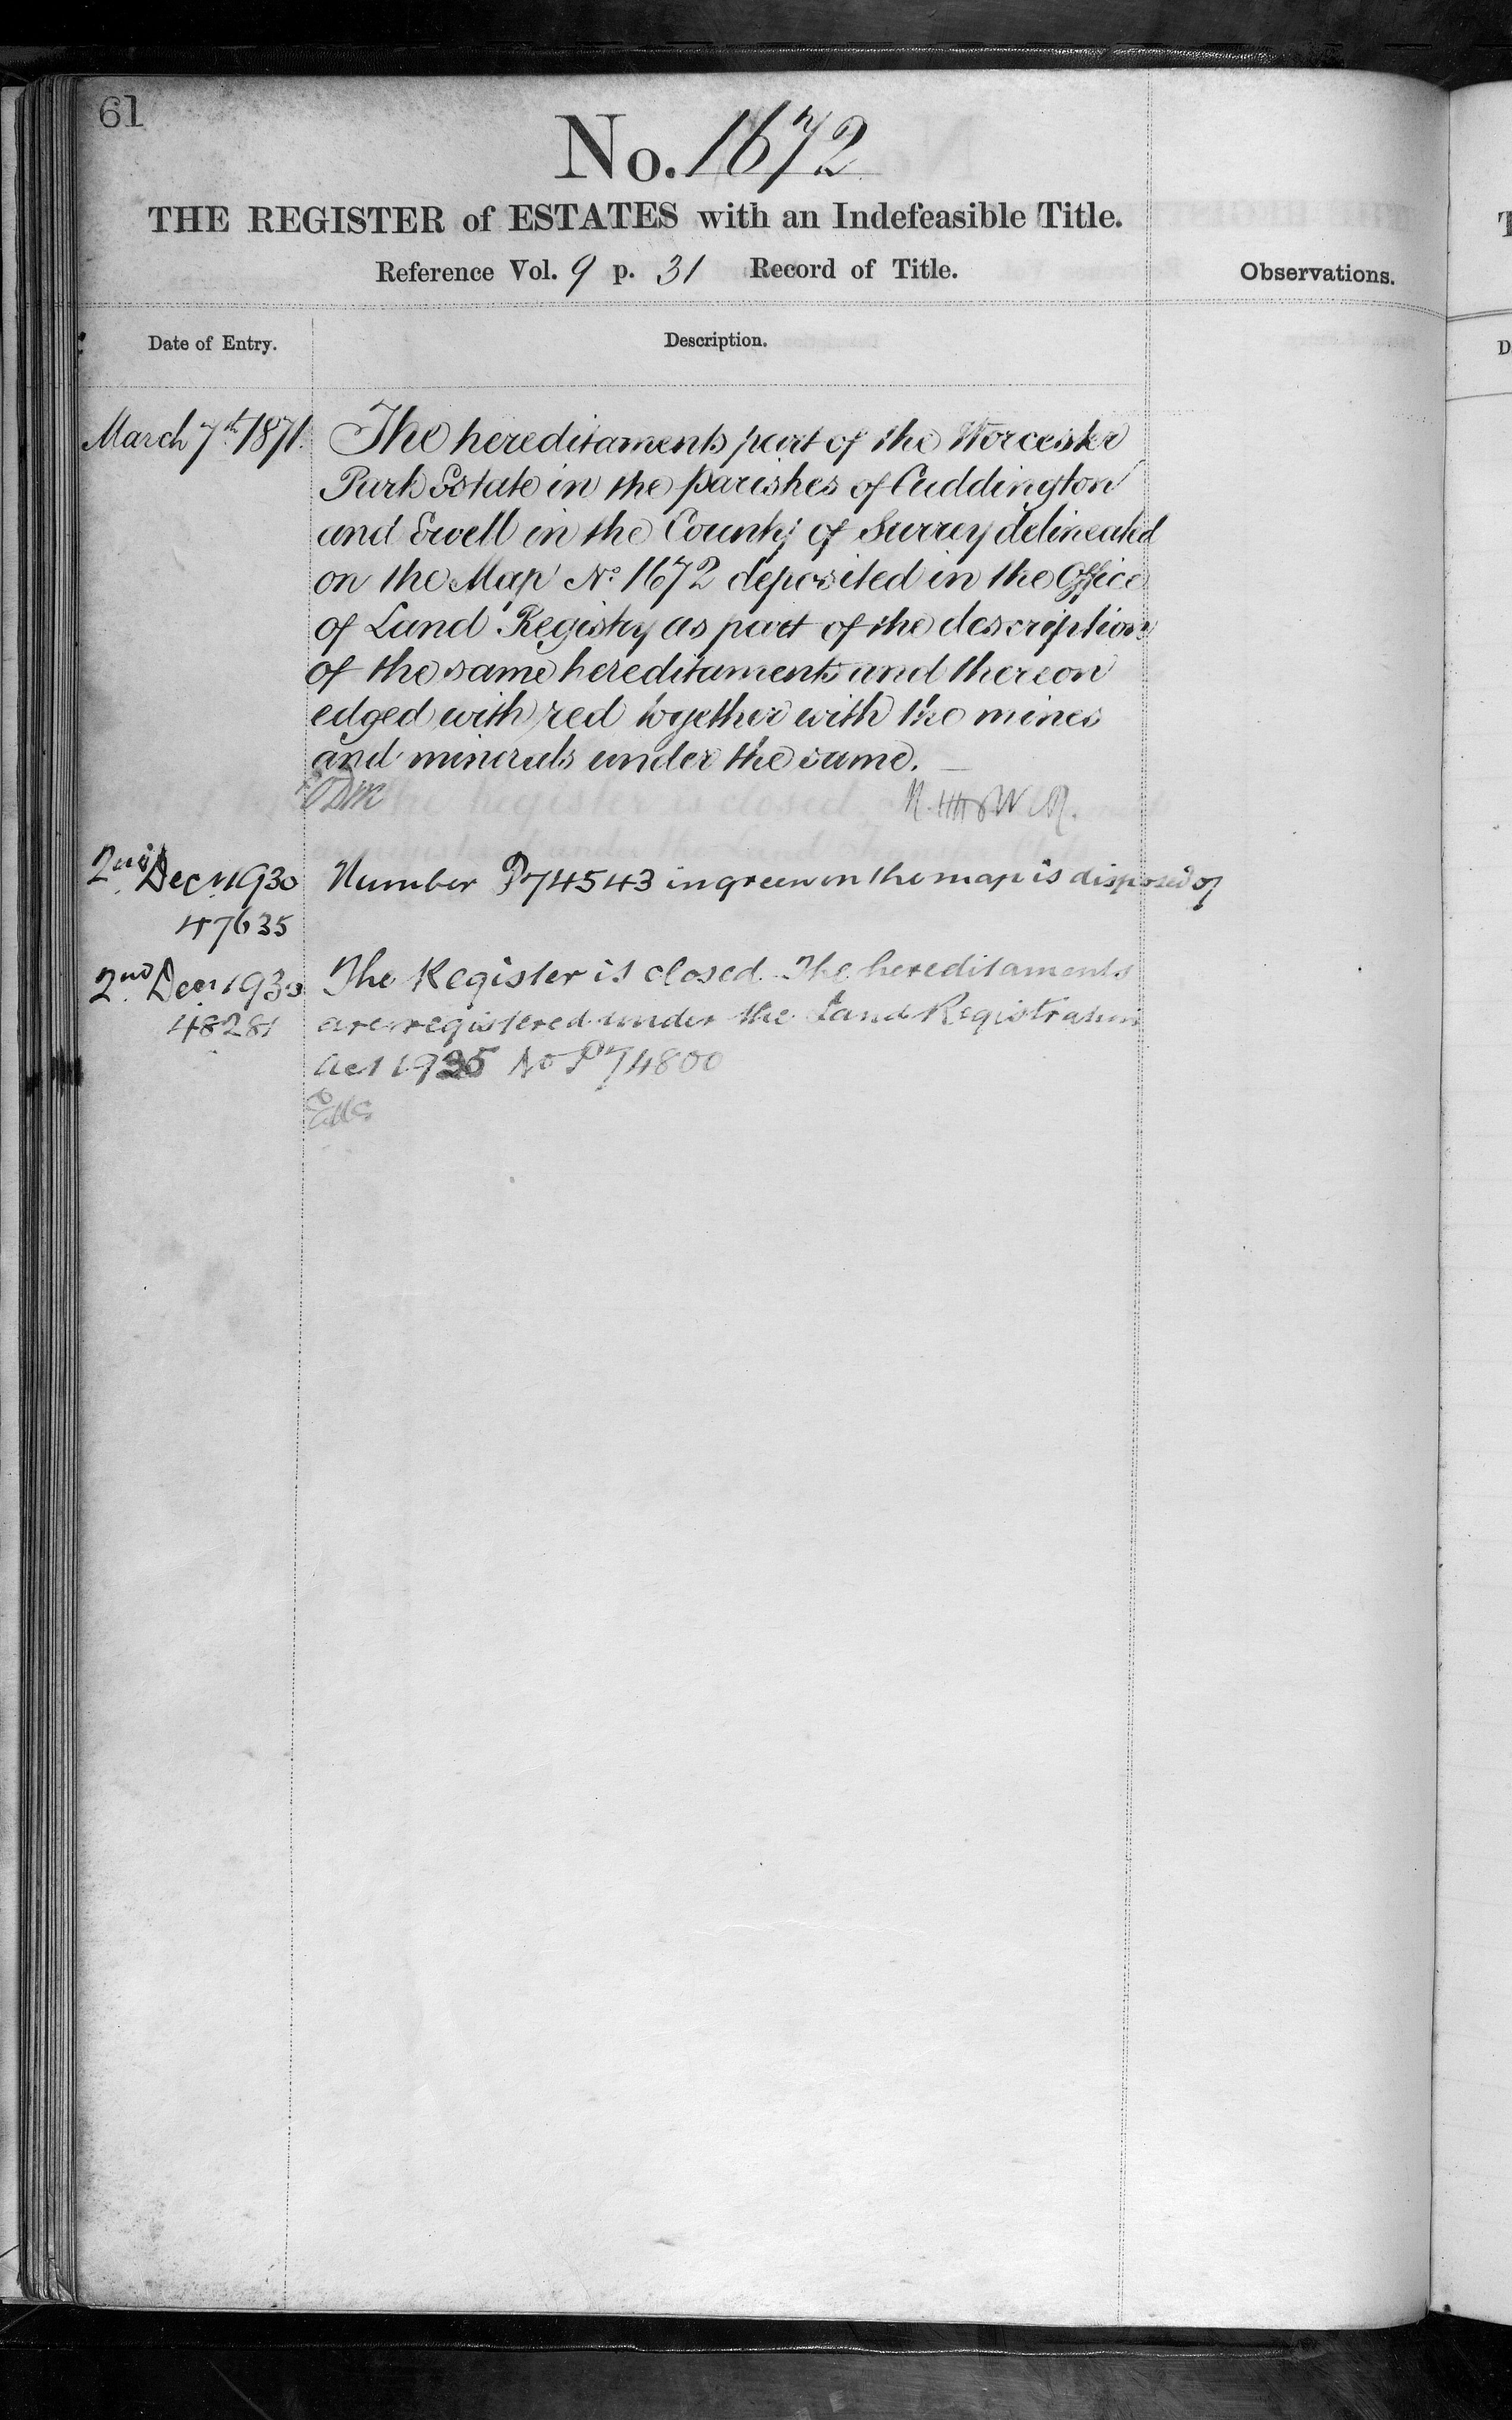 61
No. 1672
THE REGISTER of ESTATES with an Indefeasible Title.
Reference Vol. 9 p. 31 Record of Title.
Observations.
Date of Entry.
Description.
March 7th 1871.
The hereditaments part of the Worcester
Park Estate in the parishes of Cuddington
and Ewell in the County of Surrey delineated
on the Map No 1672 deposited in the Office
of Land Registry as part of the description
of the same hereditaments and thereon
edged with red together with the mines
and minerals under the same.
2nd Decr 1930
Number P74543 in green on the map is disposed of
47635
2nd Decr 1930
The Register is closed. The hereditaments
48281
are registered under the Land Registration
Act 1925 No P74800